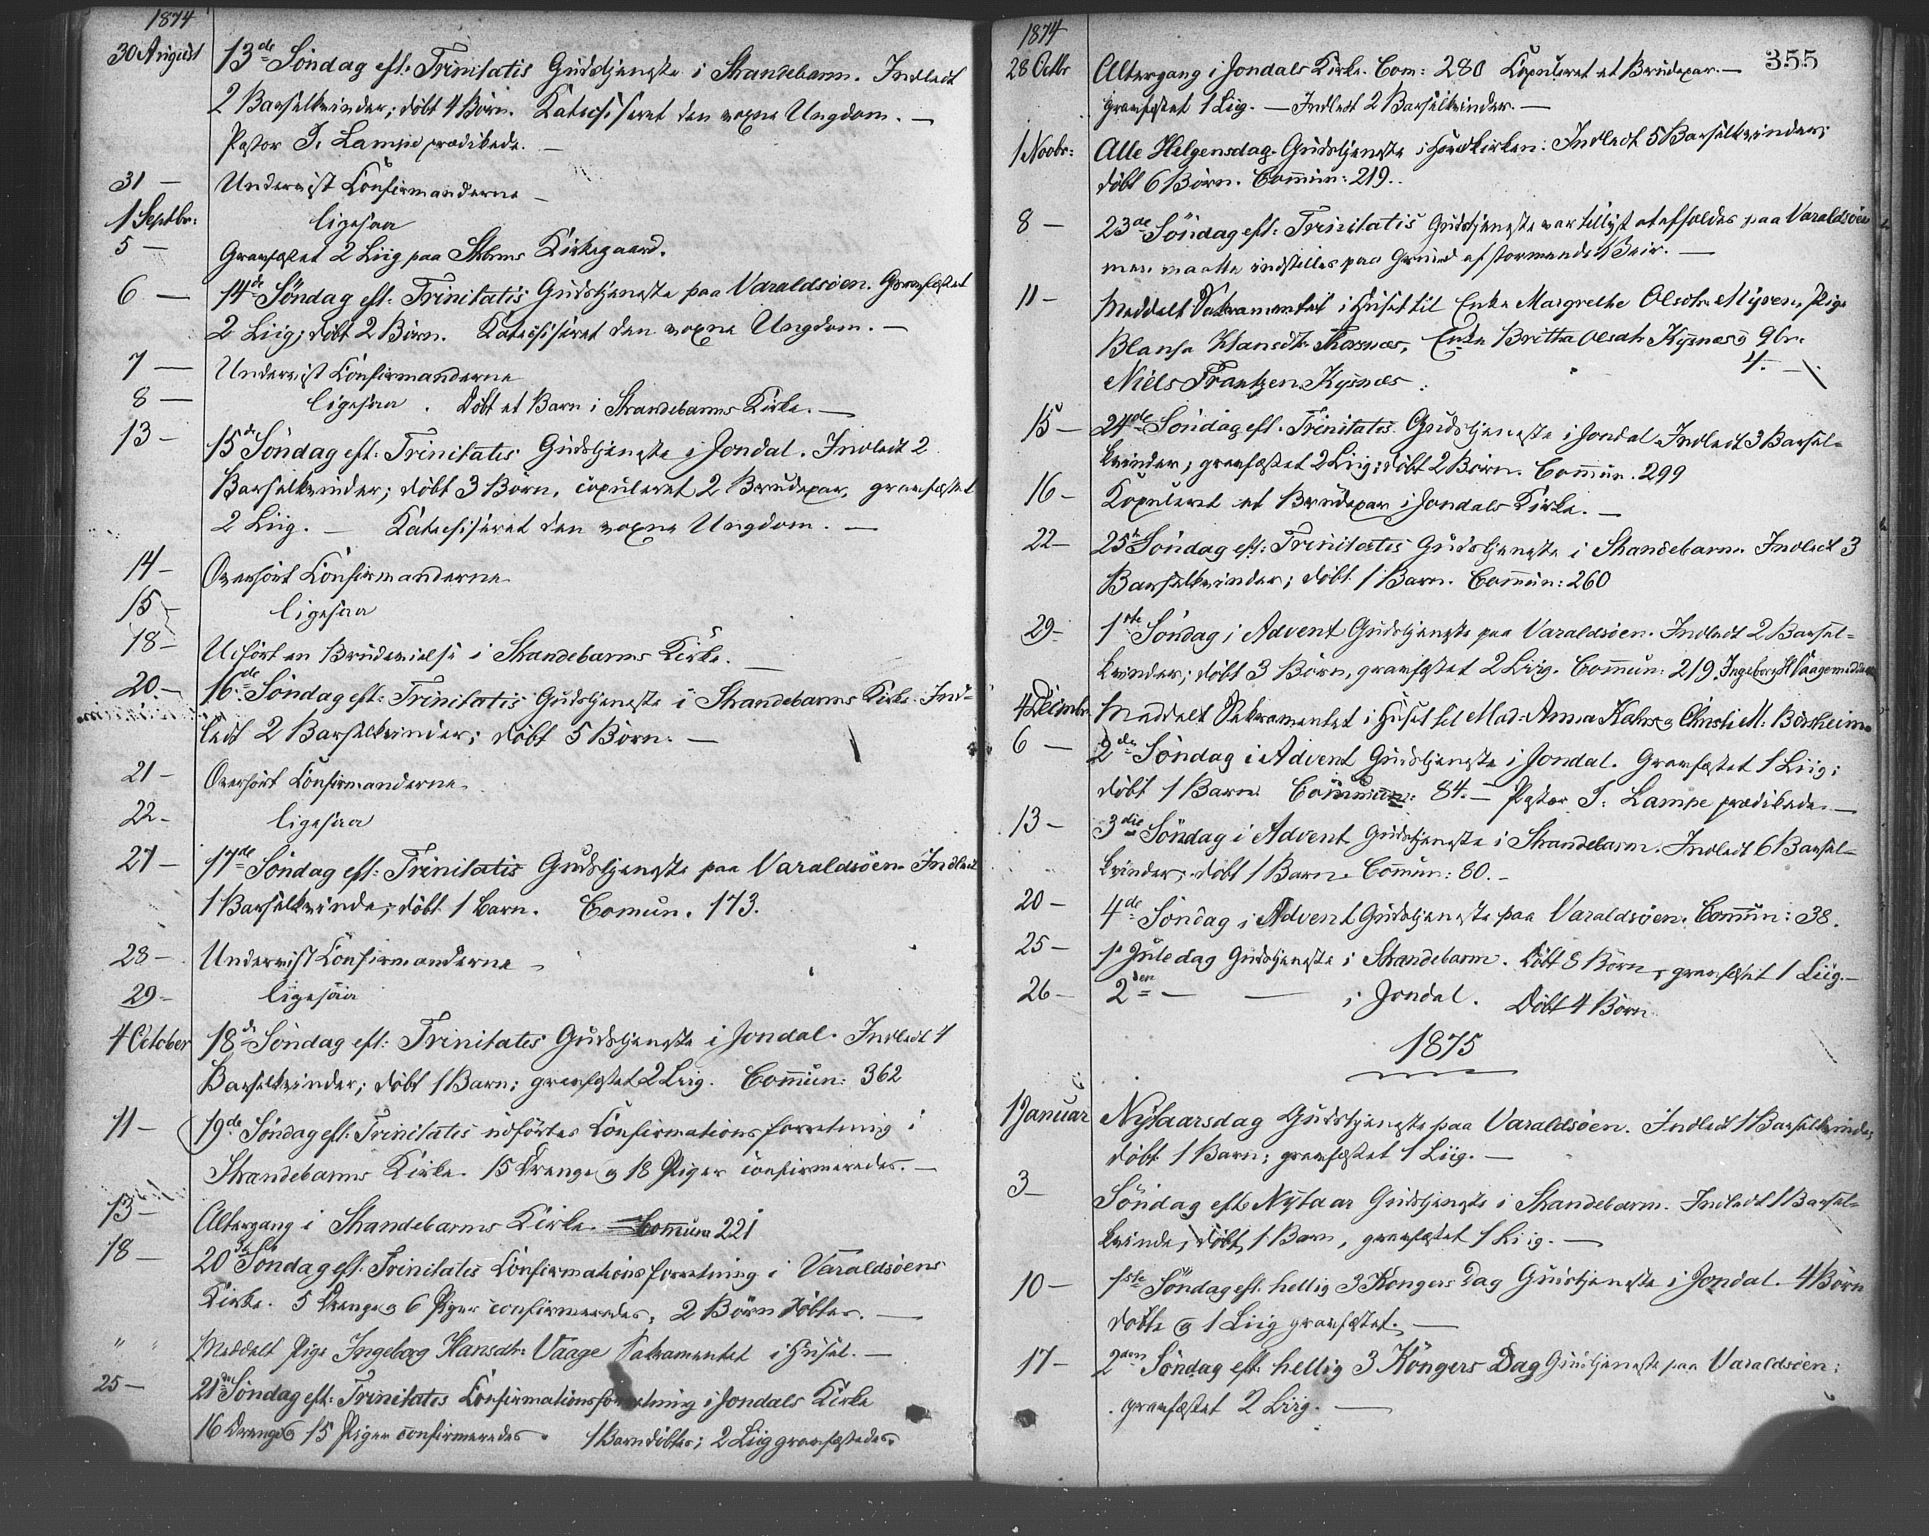 1874
30 August 13de Söndag eft: Trinitatis Gudstjeneste i Strandebarm. Indledt
2 Barselkvinder; döbt 4 Börn. Katechiseret den voxne Ungdom. —
Pastor J. Lampe prædikede. —
31 — Underviist Confirmanderne —
1 Septbr: ligesaa
5 — Græsfæstet 2 Liig paa Stbrms Kirkegaard.
6 — 14de Söndag eft: Trinitatis Gudstjeneste paa Varaldsöen. Græsfæstet
2 Liig; döbt 2 Börn. Katechiseret den voxne Ungdom. —
7 — Underviist Confirmanderne
8 — ligesaa. Döbt et Barn i Strandebarms Kirke. —
13 — 15de Söndag eft: Trinitatis Gudstjeneste i Jondal. Indledt 2
Barselkvinder; döbt 3 Börn, copuleret 2 Brudepar, græsfæstet
2 Liig. — Katechiseret den voxne Ungdom. —
14 — Overhört Confirmanderne
15 — ligesaa
18 — Udfört en Brudevielse i Strandebarms Kirke. —
20. — 16de Söndag eft: Trinitatis Gudstjeneste i Strandebarms Kirke. Ind-
ledt 2 Barselkvinder; döbt 5 Börn. —
21 — Overhört Confirmanderne
22 — ligesaa
27 — 17de Söndag eft: Trinitatis Gudstjeneste paa Varaldsöen. Indledt
1 Barselkvinde; döbt 1 Barn. Comun. 173.
28 — Underviist Confirmanderne —
29 — ligesaa
4 October 18de Söndag eft: Trinitatis Gudstjeneste i Jondal. Indledt 4
Barselkvinder; döbt 1 Barn; græsfæstet 2 Liig. Commun: 362
11 — 19de Söndag eft: Trinitatis udförtes Confirmationsforretning i
Strandebarms Kirke. 15 Drenge og 18 Piger confirmeredes. —
13 — Altergang i Strandebarms Kirke. — Commun 221
18 — 20de Söndag eft: Trinitatis Confirmationsforretning i Varaldsöens
Kirke. 5 Drenge og 6 Piger confirmeredes; 2 Börn döbtes. —
" " Meddelt Pige Ingeborg Hansdtr: Vaage Sakramentet i Huset. —
25 — 21de Söndag eft: Trinitatis Confirmationsforretning i Jondals Kirke
16 Drenge og 15 Piger confirmeredes. 1 Barn döbtes; 2 Liig græsfæstedes.
1874
355
28 Octbr Altergang i Jondals Kirke. Com: 280 Copuleret et Brudepar. —
græsfæstet 1 Liig. — Indledt 2 Barselkvinder. —
1 Novbr: Alle Helgensdag Gudstjeneste i Hovedkirken: Indledt 5 Barselkvinder;
döbt 6 Börn. Commun: 219.
8 — 23de Söndag eft: Trinitatis Gudstjeneste var tillyst at afholdes paa Varaldsöen
men maatte indstilles paa Grund af stormende Veir. —
11 — Meddelt Sakramentet i Huset til Enke Margrethe Olsdtr Myren, Pige
Hansdtr Enke Britha Olsdtr Kysnes og Gbr.
Niels Frantzen Kysnes. 4. —
15 — 24de Söndag eft. Trinitatis Gudstjeneste i Jondal. Indledt 3 Barsel-
kvinder; græsfæstet 2 Liig; döbt 2 Börn. Commun. 299
16 — Kopuleret et Brudepar i Jondals Kirke. —
22 — 25de Söndag eft: Trinitatis Gudstjeneste i Strandebarm. Indledt 3
Barselkvinder; döbt 1 Barn. Commun: 260
29 — 1ste Söndag i Advent Gudstjeneste paa Varaldsöen. Indledt 2 Barsel-
kvinder; döbt 3 Börn, græsfæstet 2 Liig. Commun: 219. Ingeborg H Vaage
4 Decmbr Meddelt Sakramentet i Huset til Mad: Anna Kahrs og Christi M: Börsheim
6 — 2den Söndag i Advent Gudstjeneste i Jondal. Græsfæstet 1 Liig;
döbt 1 Barn. Commun: 84. — Pastor J. Lampe prædikede. —
13 — 3die Söndag i Advent Gudstjeneste i Strandebarm. Indledt 6 Barsel-
kvinder; döbt 1 Barn. Commun: 80. —
20 — 4de Söndag i Advent Gudstjeneste paa Varaldsöen. Commun: 38.
25 — 1ste Juledag Gudstjeneste i Strandebarm. Döbt 8 Börn, græsfæstet 1 Liig. —
26 — 2den — — i Jondal. Döbt 4 Börn
1875
1 Januar Nytaarsdag Gudstjeneste paa Varaldsöen. Indledt 1 Barselkvinde;
döbt 1 Barn; græsfæstet 1 Liig. —
3 — Söndag eft: Nytaar Gudstjeneste i Strandebarm. Indledt 1 Barsel-
kvinde, döbt 1 Barn, græsfæstet 1 Liig. —
10 — 1ste Söndag eft: hellig 3 Kongers Dag Gudstjeneste i Jondal. 4 Börn
döbte og 1 Liig græsfæstet. —
17 — 2den Söndag eft: hellig 3 Kongers Dag Gudstjeneste paa Varaldsöen;
græsfæstet 2 Liig. —